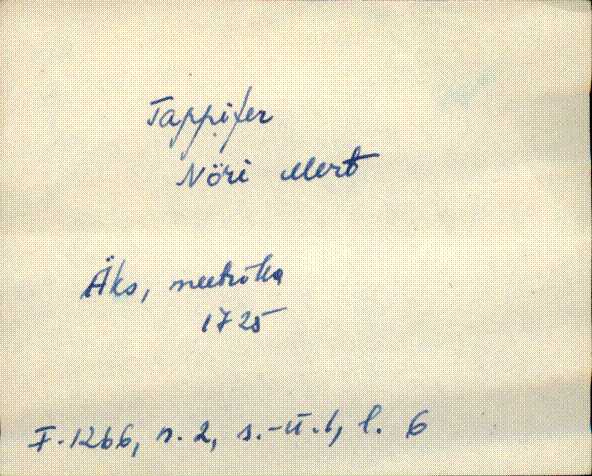 Tappifer
Nöri Mert
Äks, meetrika
1725
F. 1266, n. 2, s.-ü. 1, l. 6